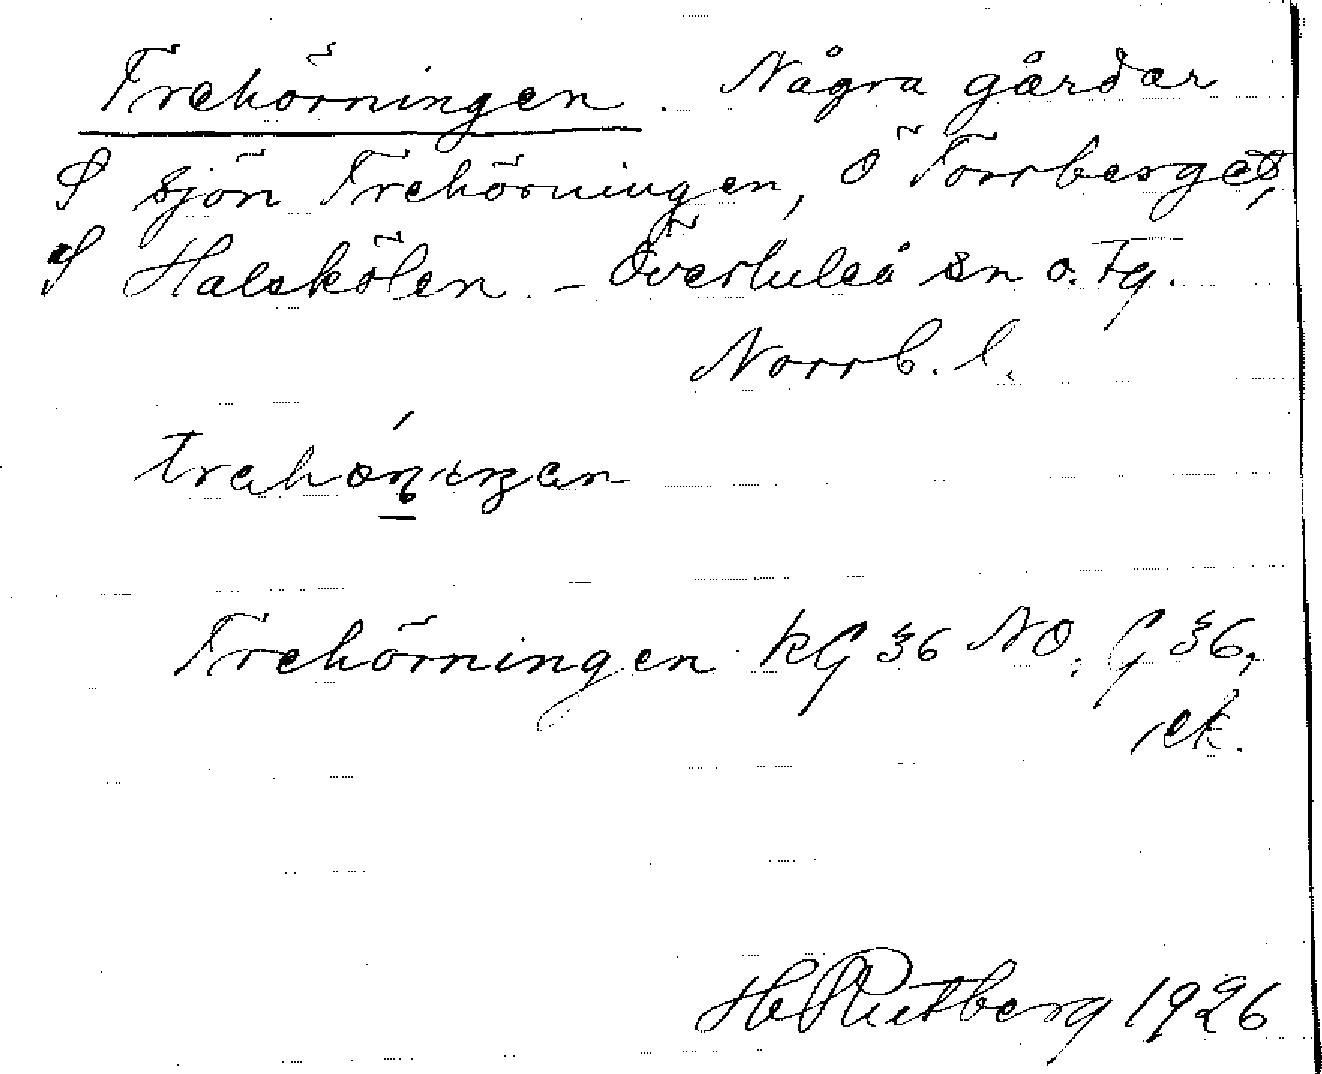 Trehörningen. Några gårdar
S sjön Trehörningen, Ö Torrberget,
S Halskölen. - Överluleå sn o. Tg.
Norrb. l.
Trehörningen KG 36 NO. G 36,
ek.
H Rutberg 1926